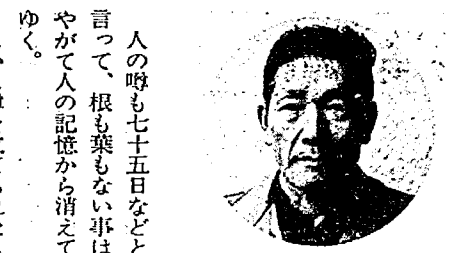 人の噂も七十五日などと
言って、根も葉もない事は
やがて人の記憶から消えて
ゆく。